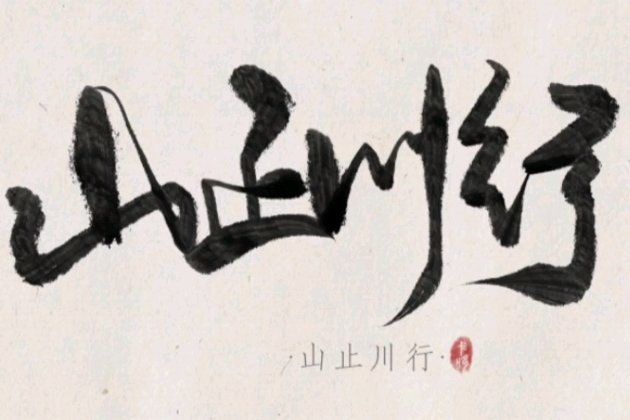 山止川行
·山止川行·